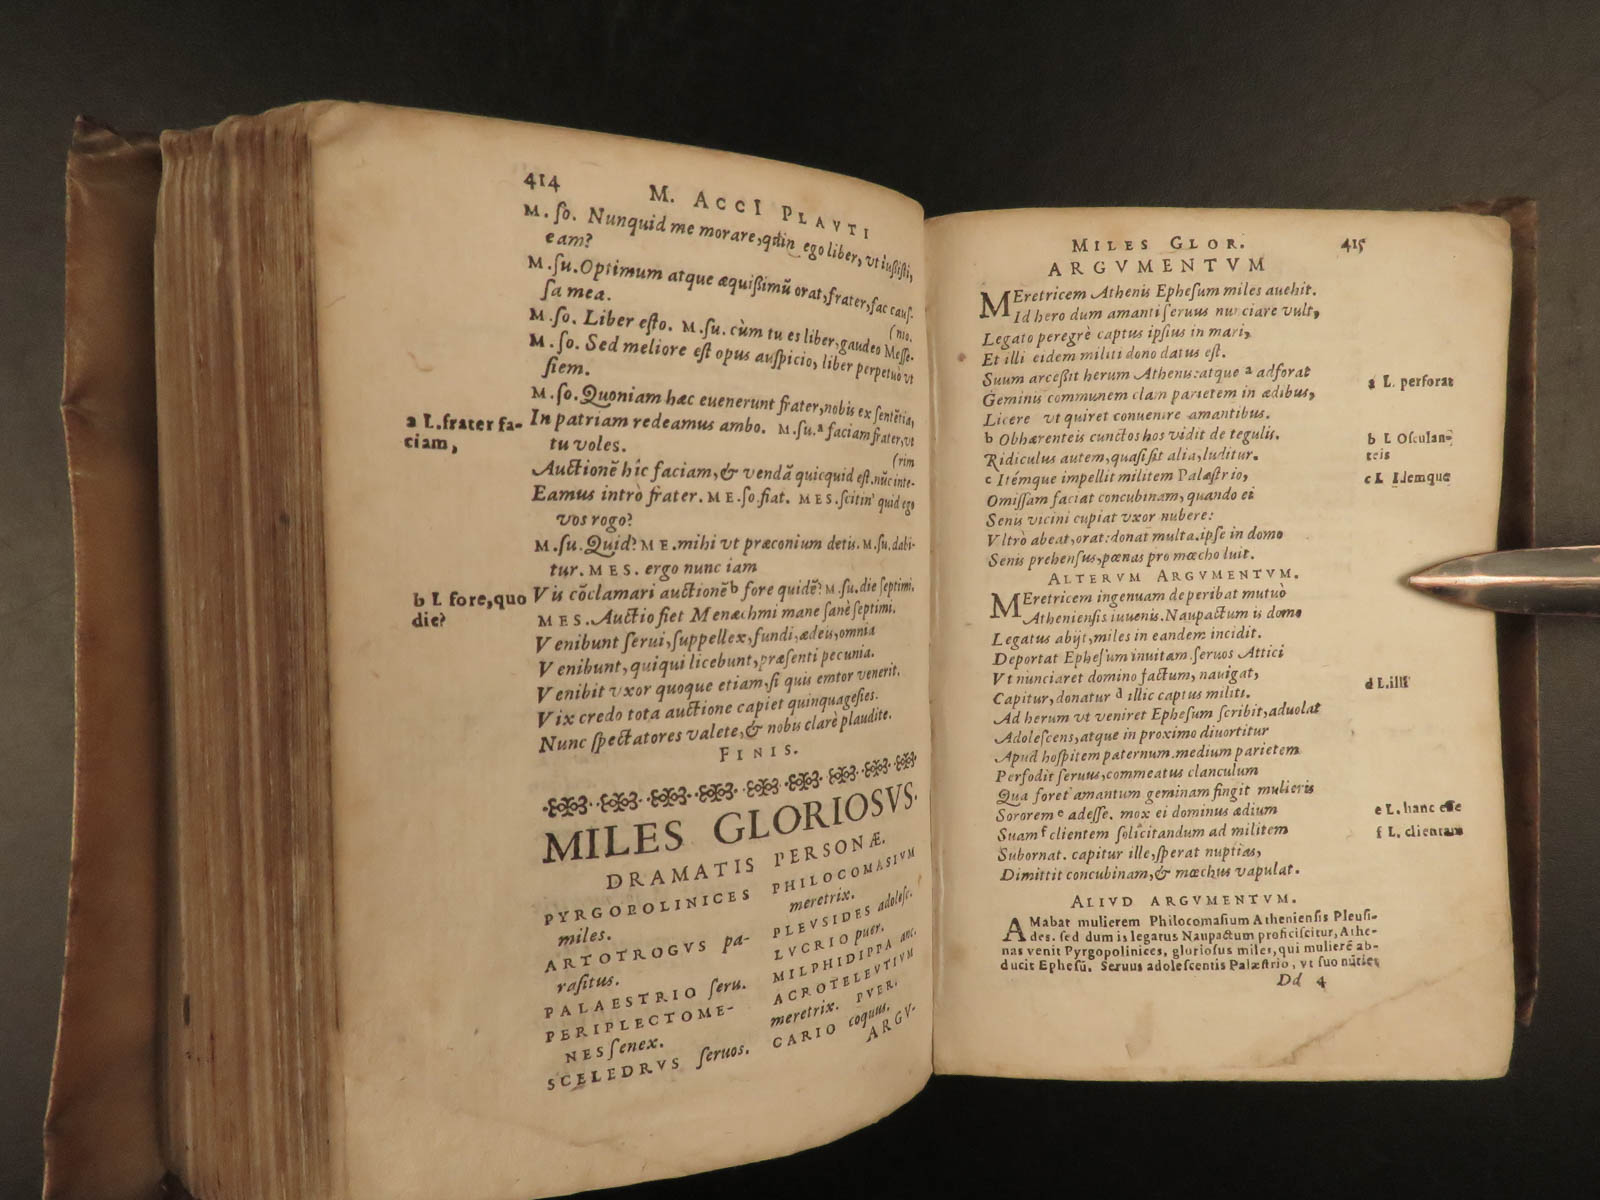 414
M. ACCI PLAVTI
M. ſo. Nunquid me morare, quin ego liber, vt iuſſiſti,
eam?
M. ſu. Optimum atque æquiſsimũ orat, frater, fac cauſ-
ſa mea. (nio.
M. ſo. Liber eſto. M. ſu. cùm tu es liber, gaudeo Meſſe-
M. ſo. Sed meliore eſt opus auſpicio, liber perpetuò vt
ſiem.
M. ſo. Quoniam hæc euenerunt frater, nobis ex ſentẽtia,
a L. frater fa-
ciam,
In patriam redeamus ambo. M. ſu. a faciam frater, vt
tu voles. (rim
Auctionẽ hîc faciam, & vendã quicquid eſt. nũc inte-
Eamus intrò frater. ME. ſo. fiat. MES. ſcitin' quid ego
vos rogo?
M. ſu. Quid? ME. mihi vt præconium detis. M. ſu. dabi-
tur. MES. ergo nunc iam
b L fore, quo
die?
Vis cõclamari auctionẽ b fore quidẽ? M. ſu. die ſeptimi.
MES. Auctio fiet Menæchmi mane ſanè ſeptimi.
Venibunt ſerui, ſuppellex, fundi, ædeis, omnia
Venibunt, quiqui licebunt, præſenti pecunia.
Venibit vxor quoque etiam, ſi quis emtor venerit.
Vix credo tota auctione capiet quinquageſies.
Nunc ſpectatores valete, & nobis clarè plaudite.
FINIS.
MILES GLORIOSVS.
DRAMATIS PERSONÆ.
PYRGOPOLINICES
miles.
ARTOTROGVS pa-
raſitus.
PALAESTRIO ſeru.
PERIPLECTOME-
NES ſenex.
SCELEDRVS ſeruos.
PHILOCOMASIVM
meretrix.
PLEVSIDES adoleſc.
LVCRIO puer.
MILPHIDIPPA anc.
ACROTELEVTIVM
meretrix. PVER.
CARIO coquus.
ARGV-
MILES GLOR.
415
ARGVMENTVM
MEretricem Athenis Epheſum miles auehit.
Id hero dum amanti ſeruus nunciare vult,
Legato peregrè captus ipſius in mari,
Et illi eidem militi dono datus eſt.
Suum arceſsit herum Athenis: atque a adforat
a L. perforat
Geminis communem clam parietem in ædibus,
Licere vt quiret conuenire amantibus.
b Obhærenteis cunctos hos vidit de tegulis.
b L Oſculan-
teis
Ridiculus autem, quaſi ſit alia, luditur.
c Itémque impellit militem Palæſtrio,
c L Idemque
Omiſſam faciat concubinam, quando ei
Senis vicini cupiat vxor nubere:
Vltrò abeat, orat: donat multa. ipſe in domo
Senis prehenſus, pœnas pro mœcho luit.
ALTERVM ARGVMENTVM.
MEretricem ingenuam deperibat mutuò
Athenienſis iuuenis. Naupactum is domo
Legatus abijt, miles in eandem incidit.
Deportat Epheſum inuitam. ſeruos Attici
Vt nunciaret domino factum, nauigat,
Capitur, donatur d illic captus militi.
d L. illi
Ad herum vt veniret Epheſum ſcribit, aduolat
Adoleſcens, atque in proximo diuortitur
Apud hoſpitem paternum. medium parietem
Perfodit ſeruus, commeatus clanculum
Qua foret amantum geminam fingit mulieris
Sororem e adeſſe. mox ei dominus ædium
e L. hanc eſſe
Suam f clientem ſolicitandum ad militem
f L. clientam
Subornat. capitur ille, ſperat nuptias,
Dimittit concubinam, & mœchus vapulat.
ALIVD ARGVMENTVM.
AMabat mulierem Philocomaſium Athenienſis Pleuſi-
des. ſed dum is legatus Naupactum proficiſcitur, Athe-
nas venit Pyrgopolinices, glorioſus miles, qui mulierẽ ab-
ducit Epheſũ. Seruus adoleſcentis Palæſtrio, vt ſuo nũtiet
Dd 4